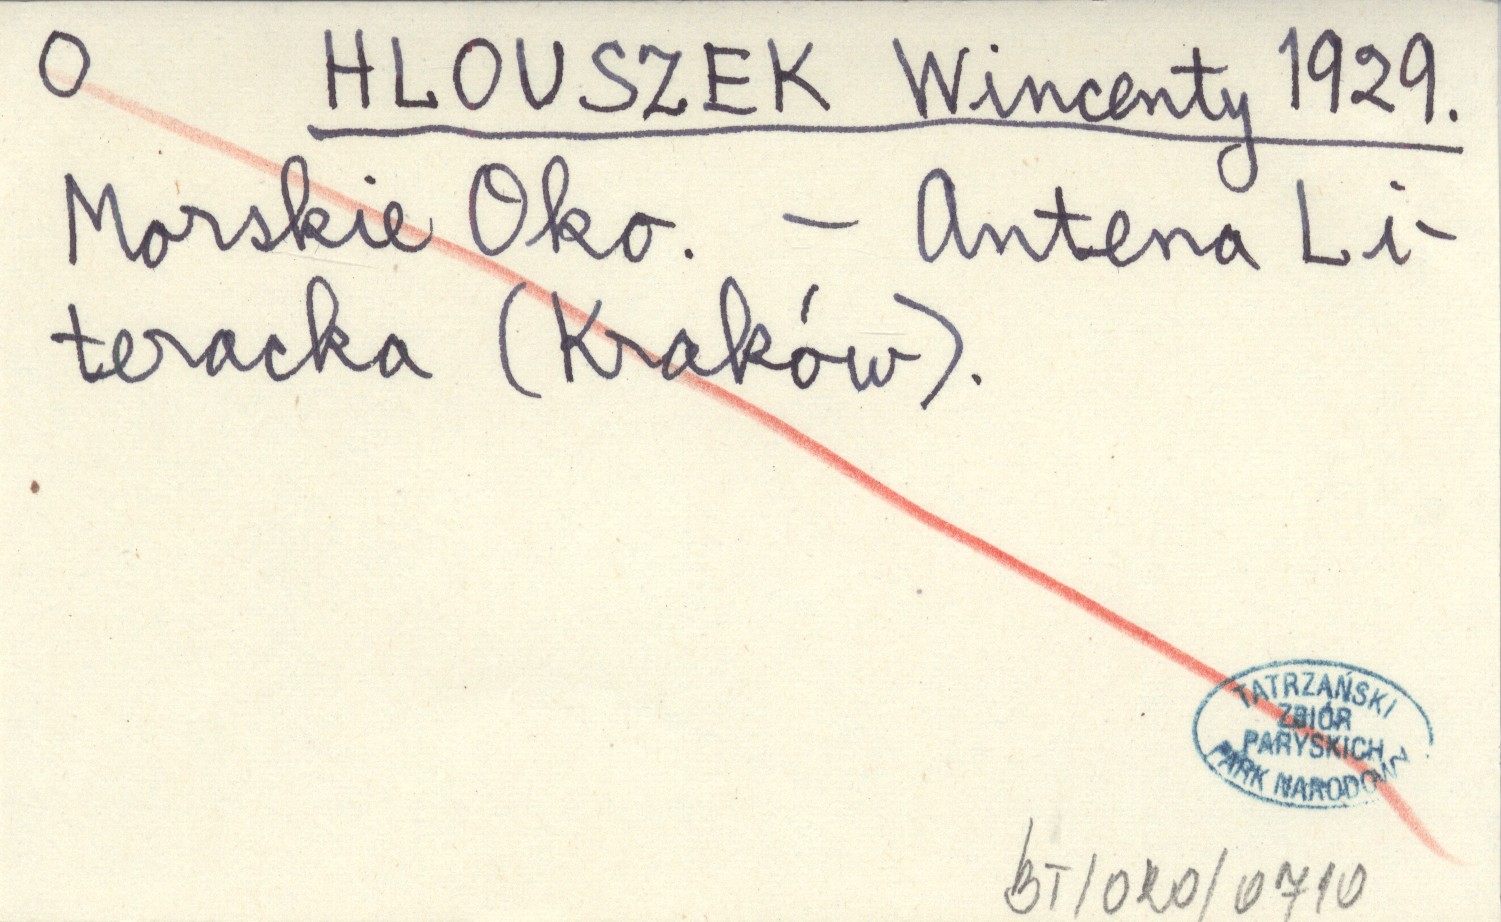 O HLOUSZEK Wincenty 1929.
Morskie Oko. – Antena Li-
teracka (Kraków).
TATRZAŃSKI
ZBIÓR
PARYSKICH
PARK NARODOWY
BT/020/0710